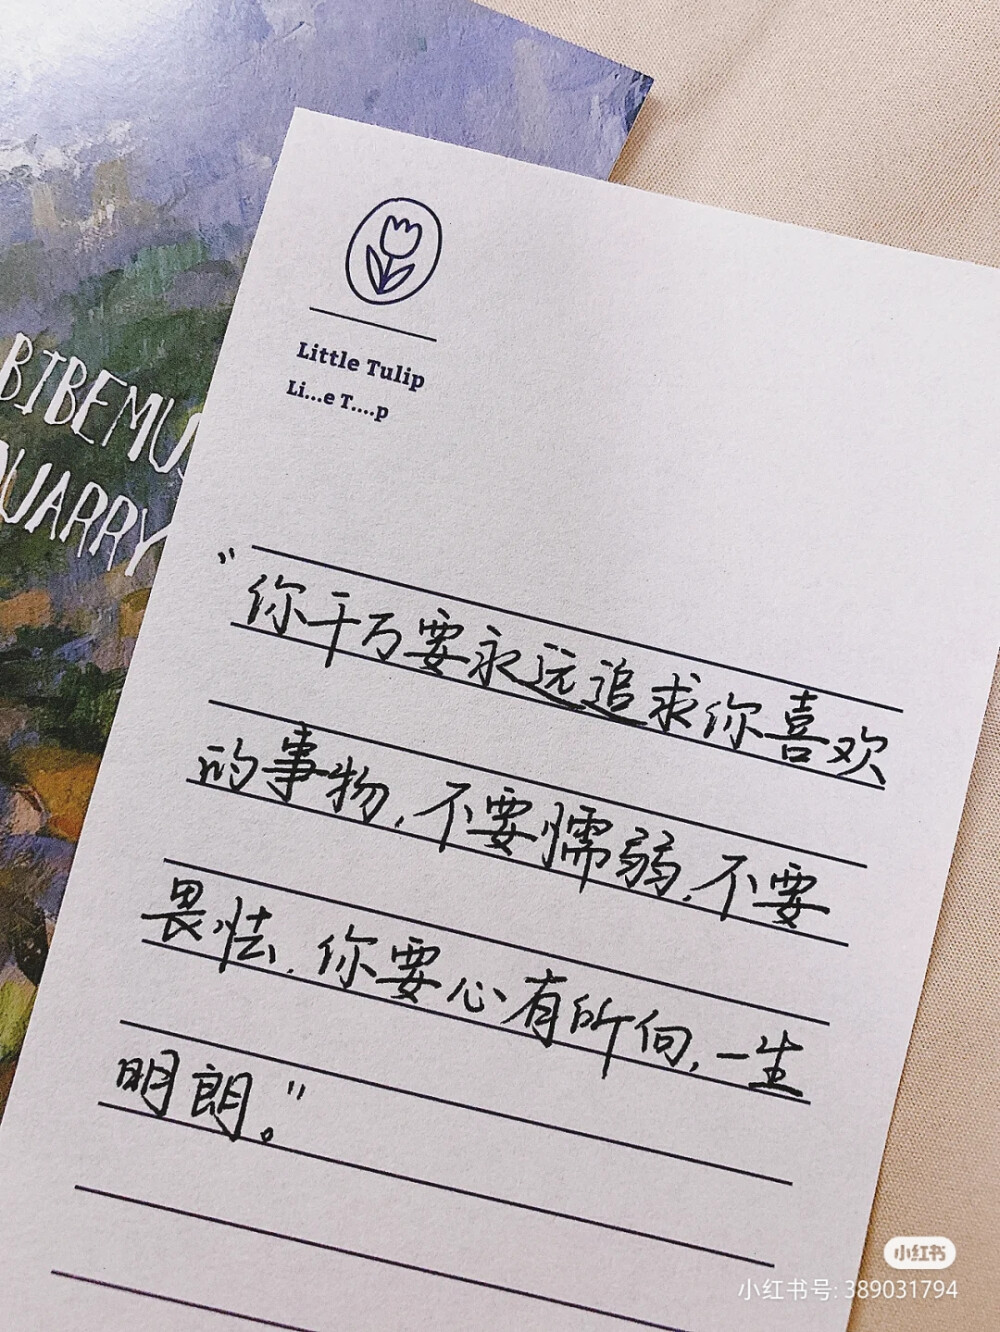 BIBEMUS
QUARRY
Little Tulip
Li...e T....p
"你千万要永远追求你喜欢
的事物,不要懦弱,不要
畏怯,你要心有所向,一生
明朗。"
小红书
小红书号: 389031794